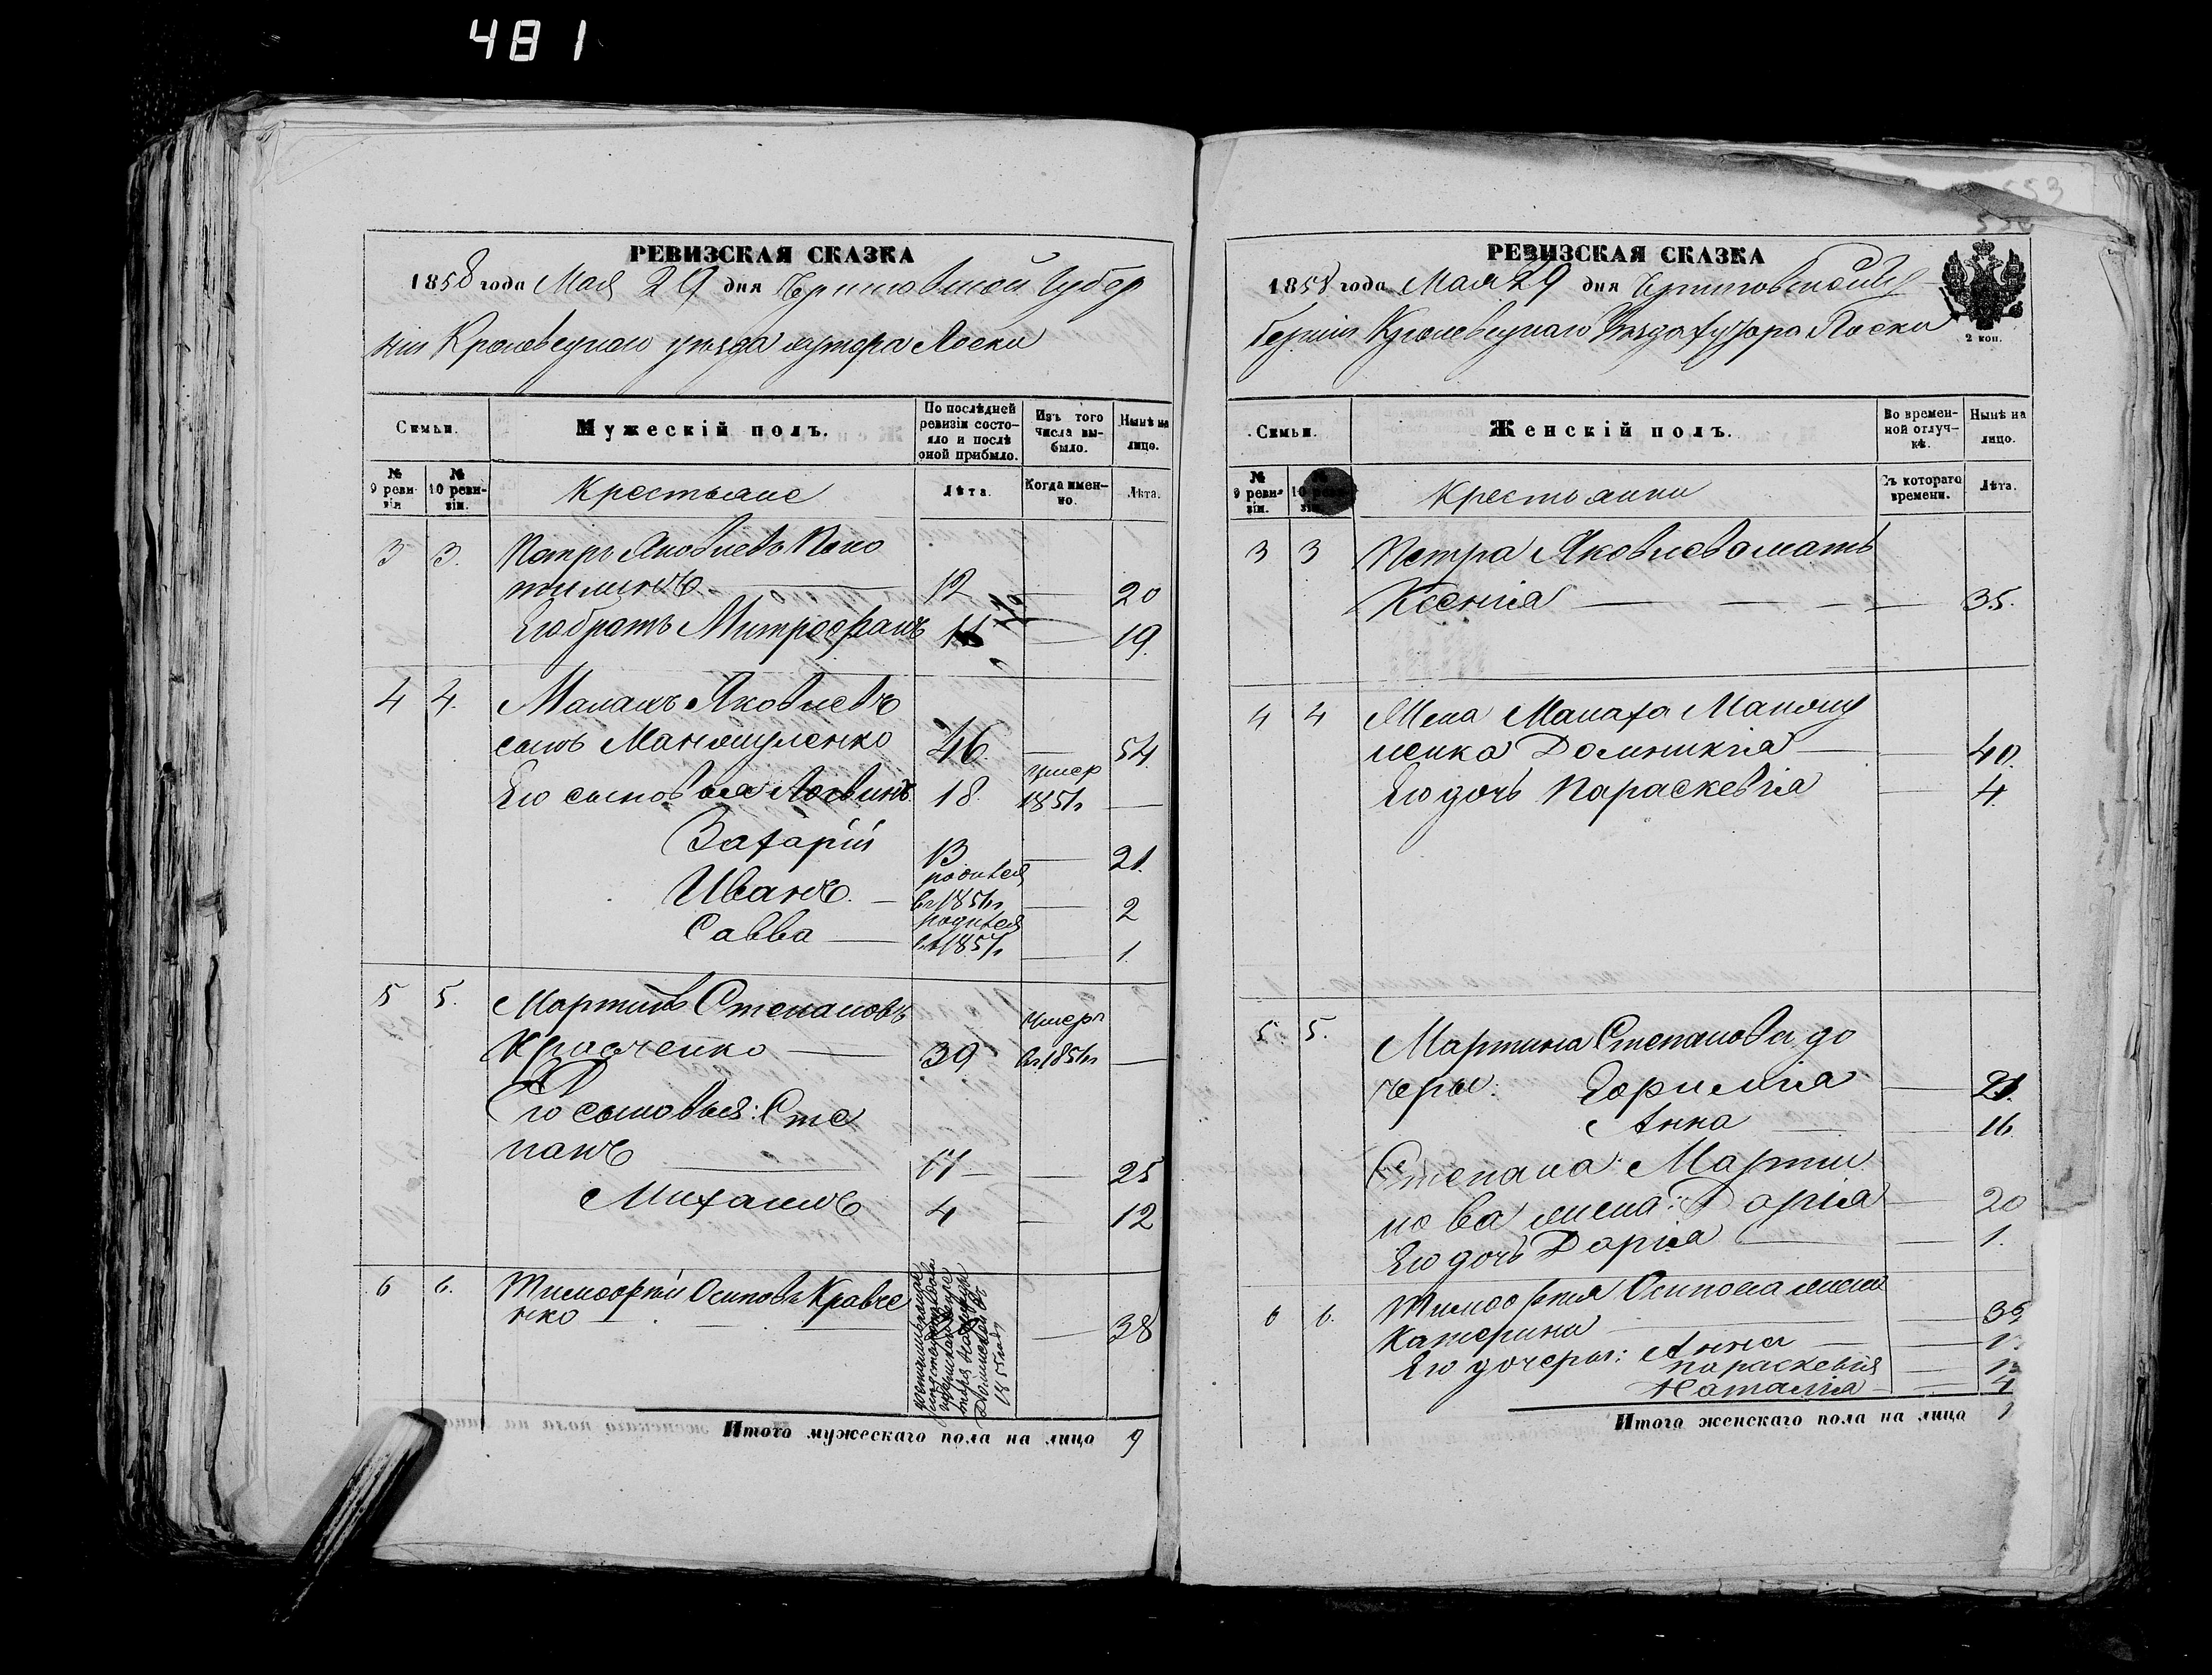 481
РЕВИЗСКАЯ СКАЗКА
1858 года Мая 29 дня Черниговской Губер
ніи Кролевецкаго уѣзда хутора Лоски
Семьи.
Мужескій полъ.
По послѣдней ревизіи состояло и послѣ оной прибыло.
Изъ того числа выбыло.
Нынѣ на лицо.
№ 9 ревизіи
№ 10 ревизіи.
Крестьяне
Лѣта.
Когда именно.
Лѣта.
3 3. Петръ Яковлевъ
12 — 20
Его братъ Митрофанъ 11 — 19.
4 4. Яковлевъ
сынъ Маношуленко 46. — 54
Его сыновья Логвинъ 18 умер 1851г —
Захарій 13 — 21.
Иванъ. — родился — 2
Савва — родился — 1.
5 5. Мартинъ Степановъ
Кравченко — 39 умеръ —
Его сыновья: Сте
панъ 17 — — 25
Михаилъ 4 — 12
6 6. Тимофѣй Осиповъ Кравче
нко — 38
Итого мужескаго пола на лицо 9
553
РЕВИЗСКАЯ СКАЗКА
1858 года Мая 29 дня Черниговской Гу
берніи Кролевецкаго Уѣзда хутора Лоски
2 коп.
Семьи.
Женскій полъ.
Во временной отлучкѣ.
Нынѣ на лицо.
№ 9 ревизіи.
Крестьянки
Съ котораго времени.
Лѣта.
3 3 Петра Яковлева мать
Ксенія — — — — 35.
4 4 Жена
ленка Домникія — — 40.
Его дочь Параскевія — 4.
5 5. Мартина Степанова до
чери: Ефимія — 21.
Анна — — 16.
Степана Марти
нова жена: Дарія — — 20
Его дочь Дарія — — 1.
6 6. Тимофѣя Осипова жена
Катерина —
Его дочери: Анна —
Параскевія —
Наталія — — 4
Итого женскаго пола на лицо